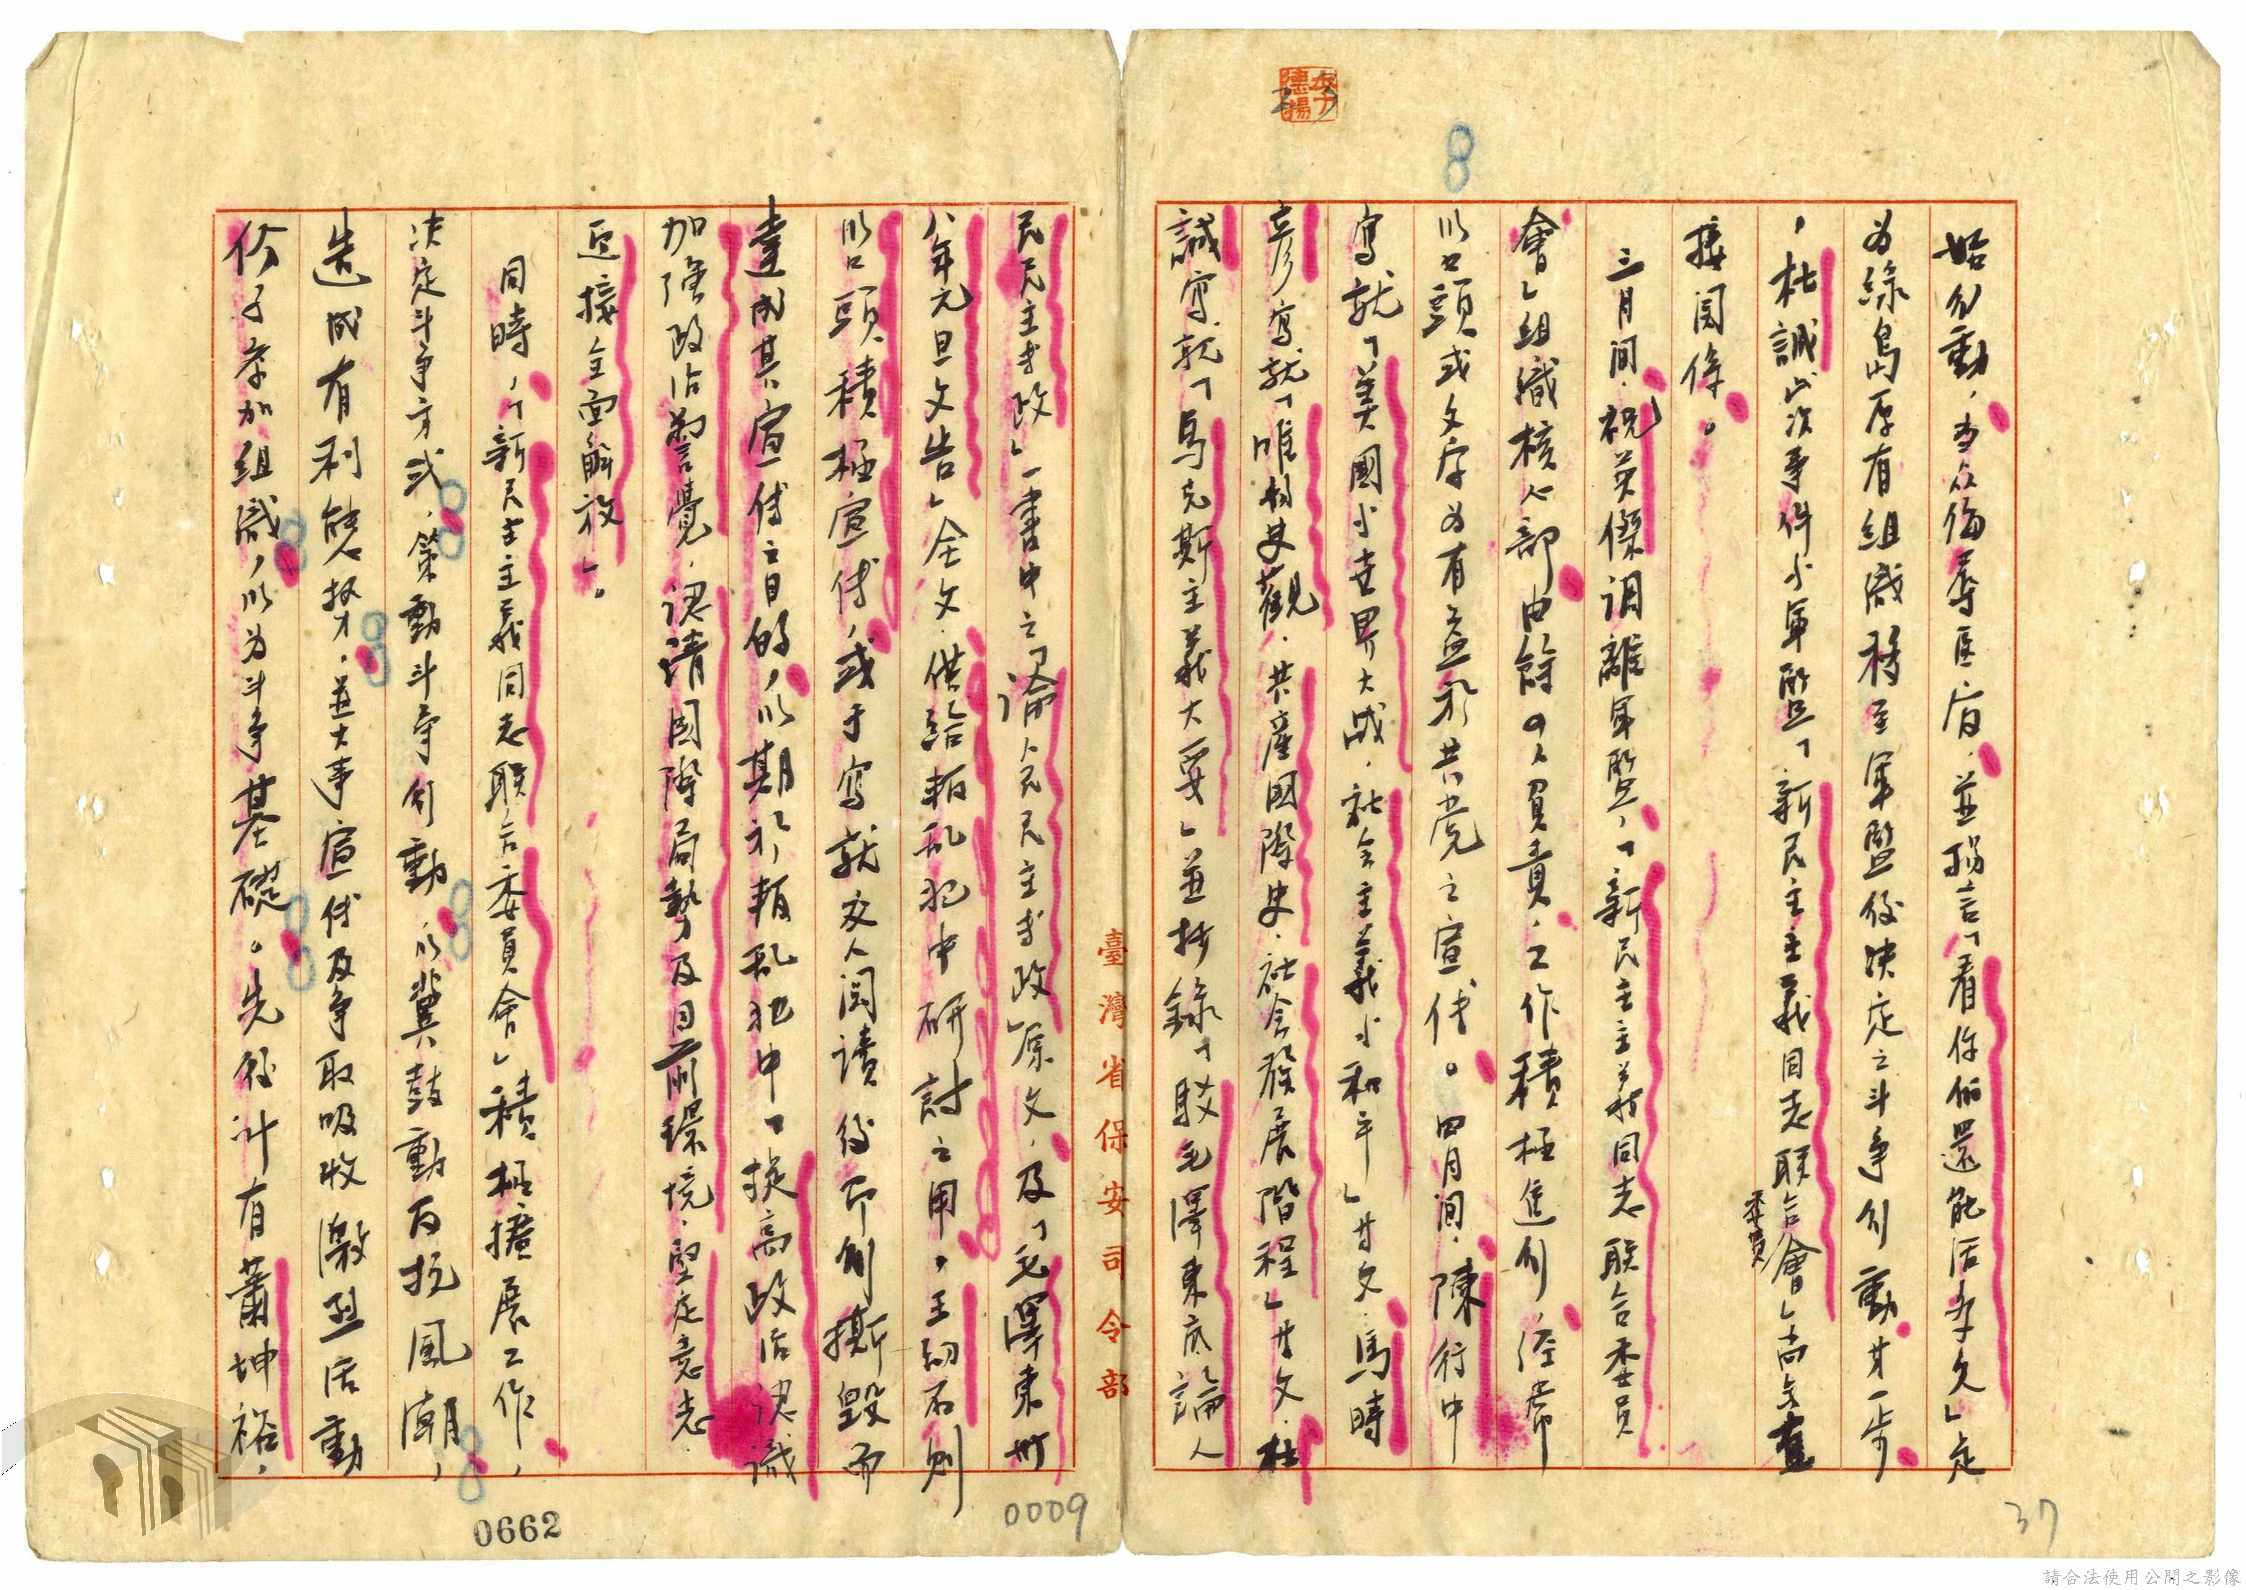 始行動,当众侮辱医官,並揚言「看你們还能活多久」是
为綠島原有組織移至軍監後決定之斗爭行動廿一步
,杜誠此次事件与軍監「新民主主義同志联合委員會」尚无直
接関係。
三月间,祝英傑調離軍監,「新民主主義同志联合委員
會」組織核心部由餘の人負責,工作積極進行,经常
以口頭或文字为有益於共党之宣传。四月间,陳行中
寫就「美國与世界大战,社会主義与和平」廿文,馬時
彦寫就「唯物史觀,共產國際史,社会發展階程」廿文,杜
誠寫就「馬克斯主義大要」並抄錄「駁毛澤東底論人
民民主专政」一書中之「論人民民主专政」原文,及「毛澤東卅
八年元旦文告」全文,供給叛乱犯中研討之用,王幼石則
以口頭積極宣传,或于寫就交人阅讀後即刻撕毀而
達成其宣传之目的,以期於叛乱犯中「提高政治認識
加強政治警覺,認清國際局勢及目前環境,堅定意志,
迎接全面解放」。
同時,「新民主主義同志联合委員會」積極擴展工作,
决定斗争方式,策動斗争行動,以冀鼓動反抗風潮,
造成有利態势,並大事宣传及争取吸收激烈活動
份子参加組織,以为斗争基礎。先後计有蕭坤裕,
臺灣省保安司令部
8
37
0009
0662
請合法使用公開之影像